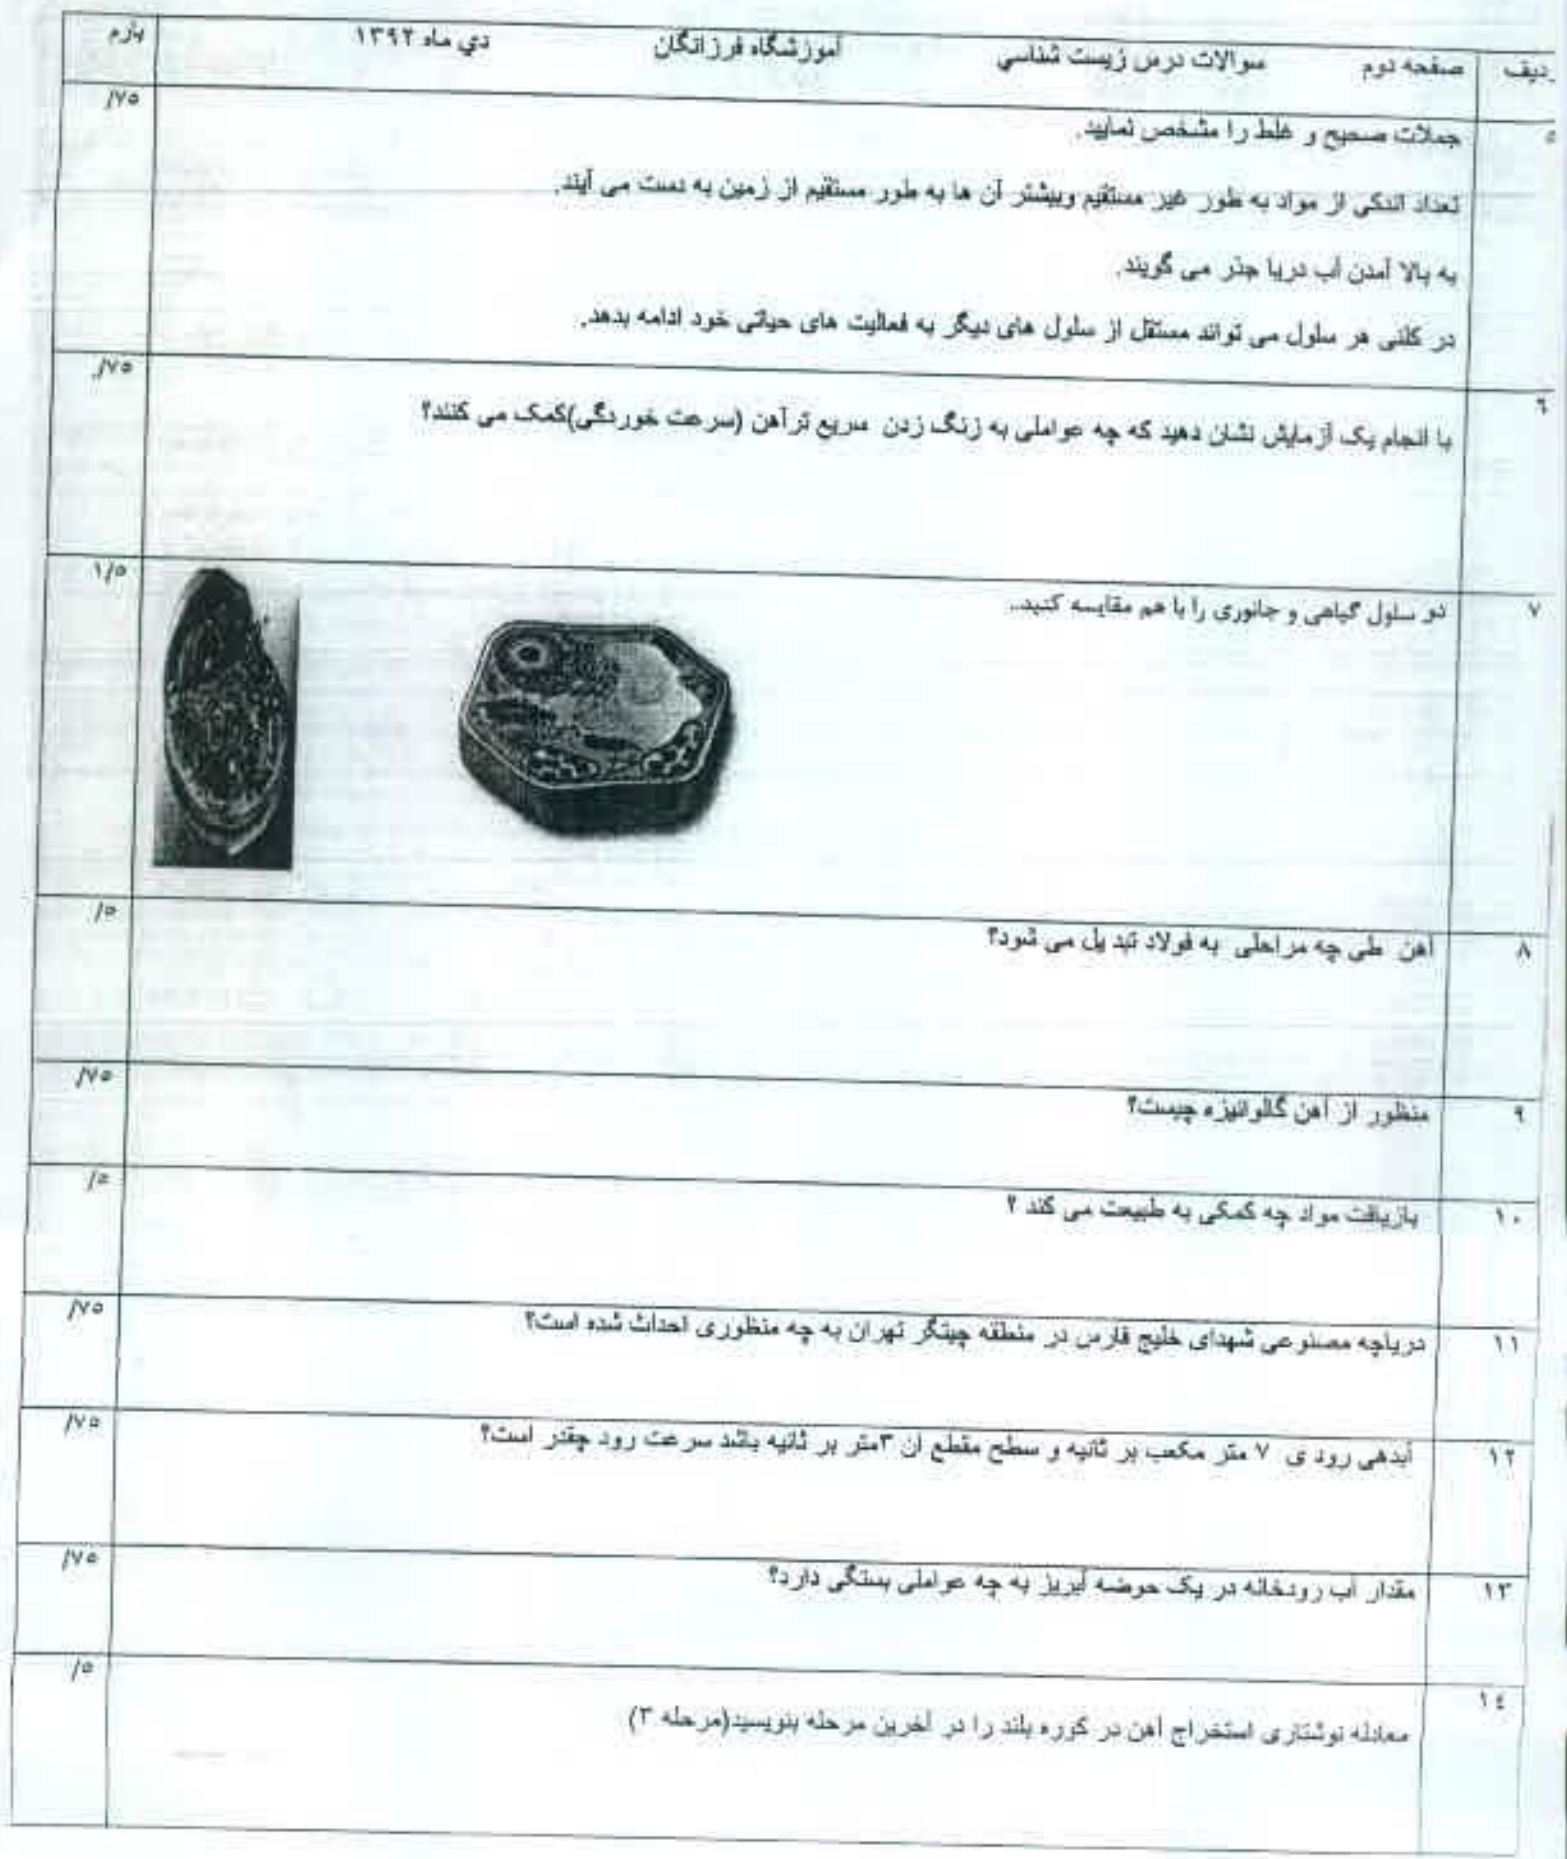 ردیف صفحه دوم سوالات درس زیست شناسي آموزشگاه فرزانگان دي ماه ۱۳۹۲ بارم
۵ جملات صحیح و غلط را مشخص نمایید. /۷۵
تعداد اندکی از مواد به طور غیر مستقیم وبیشتر آن ها به طور مستقیم از زمین به دست می آیند.
به بالا آمدن آب دریا جذر می گویند.
در کلنی هر سلول می تواند مستقل از سلول های دیگر به فعالیت های حیاتی خود ادامه بدهد.
۶ با انجام یک آزمایش نشان دهید که چه عواملی به زنگ زدن سریع ترآهن (سرعت خوردگی)کمک می کنند؟ /۷۵
۷ دو سلول گیاهی و جانوری را با هم مقایسه کنید.. ۱/۵
۸ آهن طی چه مراحلی به فولاد تبد یل می شود؟ /۵
۹ منظور از آهن گالوانیزه چیست؟ /۷۵
۱۰ بازیافت مواد چه کمکی به طبیعت می کند ؟ /۵
۱۱ دریاچه مصنوعی شهدای خلیج فارس در منطقه چیتگر تهران به چه منظوری احداث شده است؟ /۷۵
۱۲ آبدهی رود ی ۷ متر مکعب بر ثانیه و سطح مقطع ان ۳متر بر ثانیه باشد سرعت رود چقدر است؟ /۷۵
۱۳ مقدار آب رودخانه در یک حوضه آبریز به چه عواملی بستگی دارد؟ /۷۵
۱٤ معادله نوشتاری استخراج آهن در کوره بلند را در آخرین مرحله بنویسید(مرحله ۳) /۵